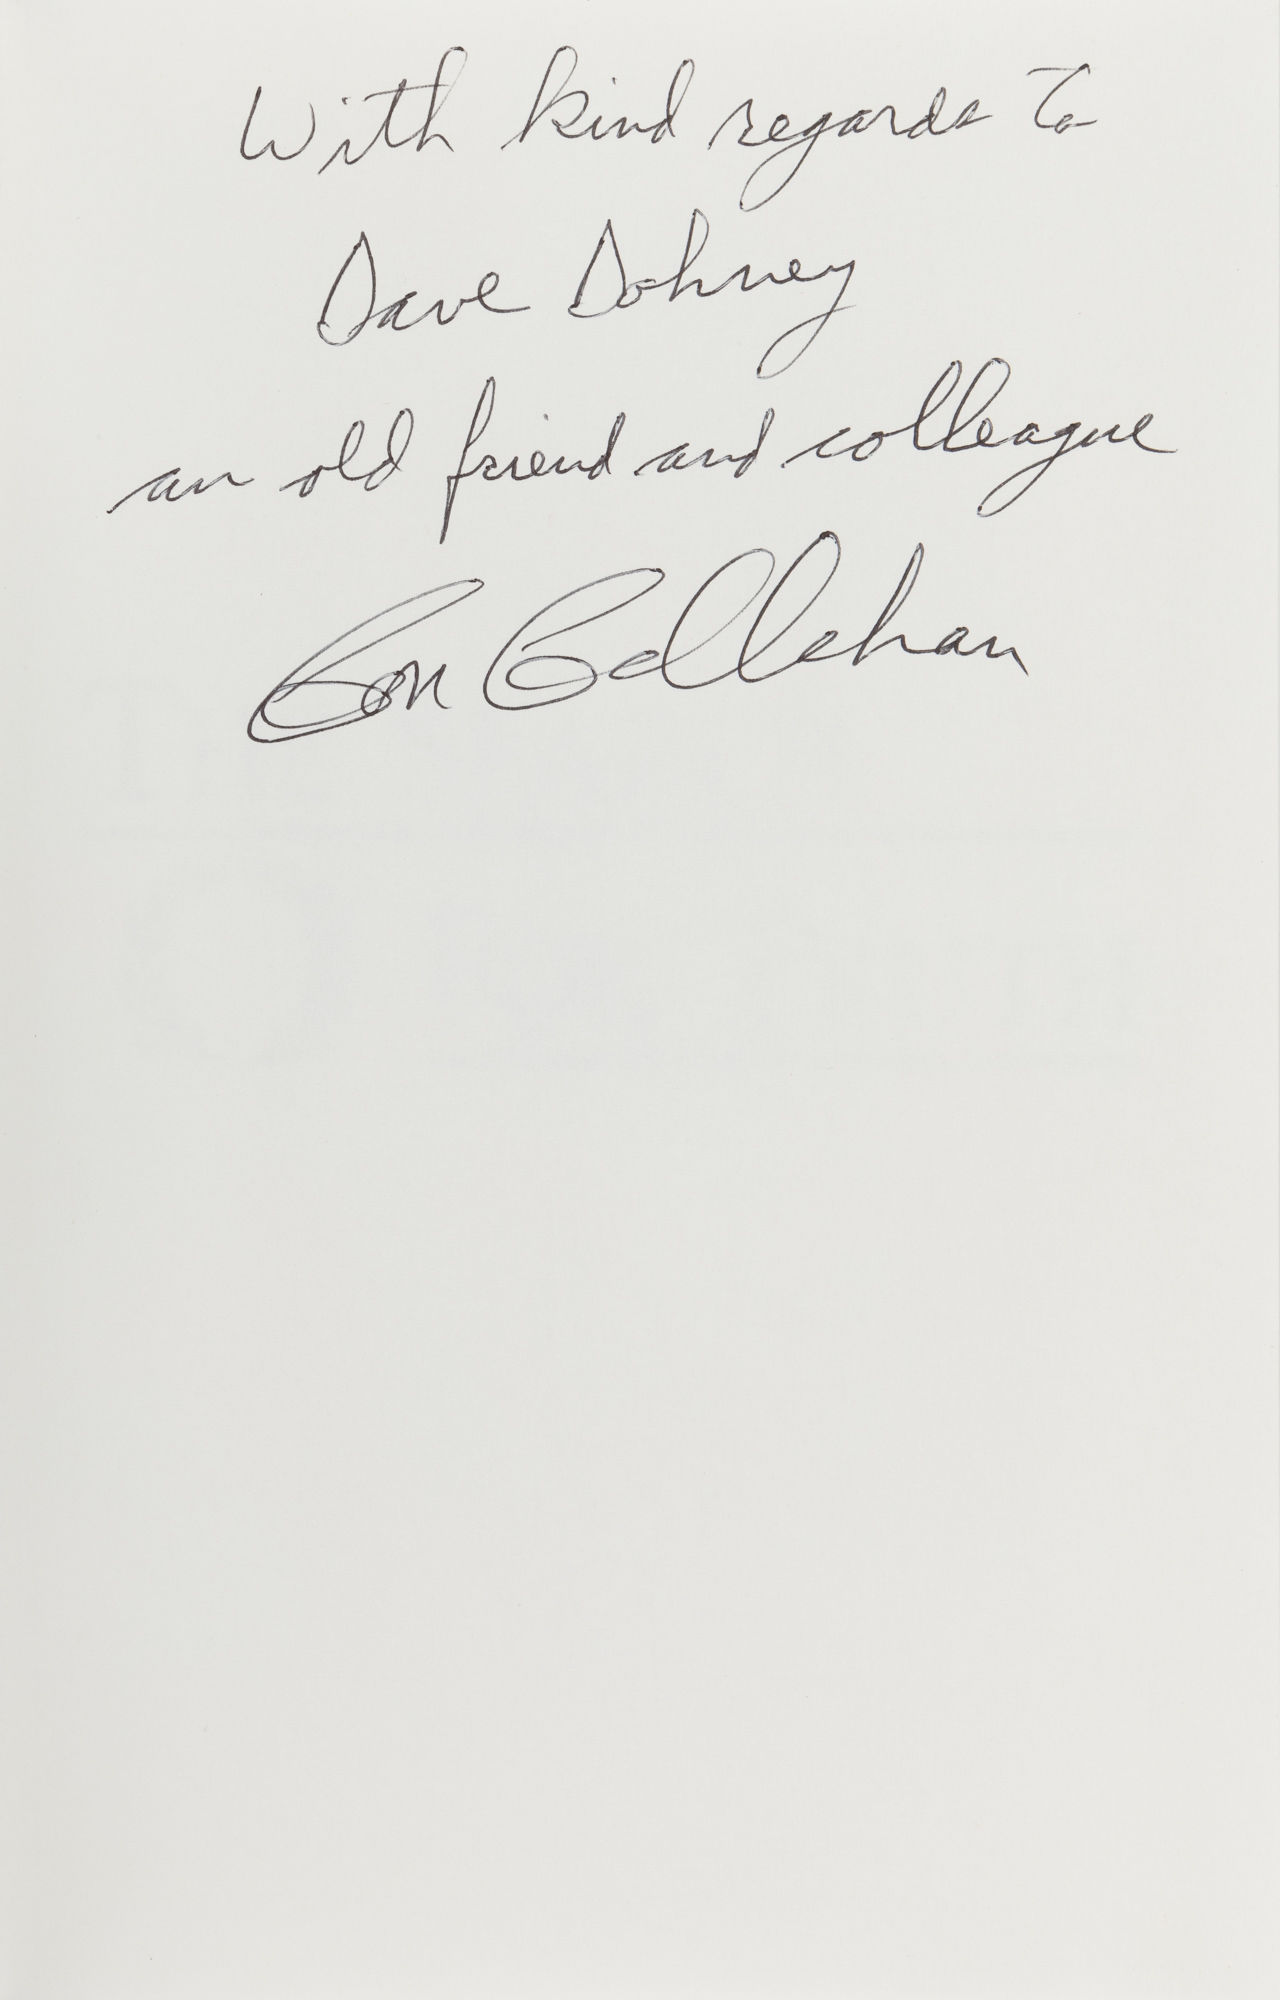 With kind regards to
Dave Dohney
an old friend and colleague
Con Callehan